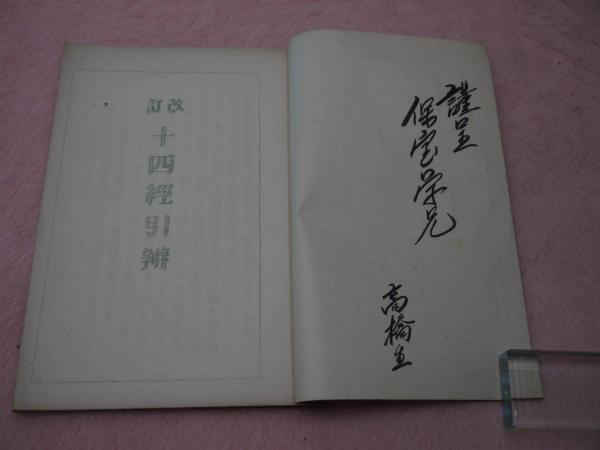 謹呈
保室学兄
高橋生
改訂
十四經引辨